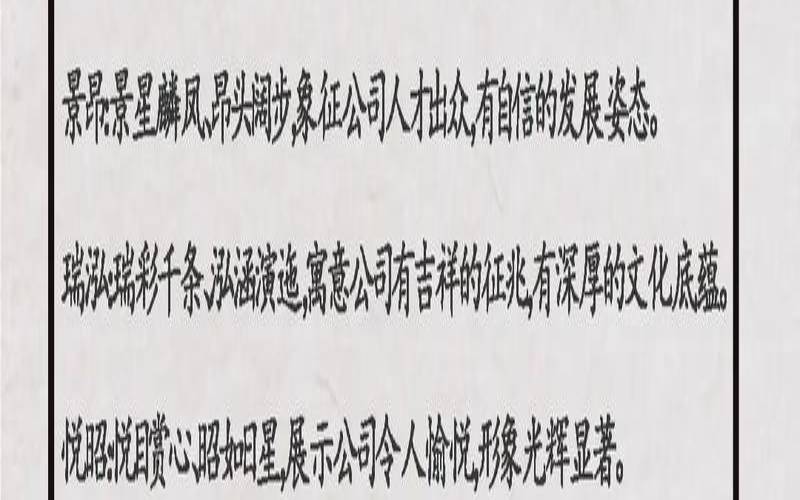 景昂:景星麟凤、昂头阔步,象征公司人才出众,有自信的发展姿态。
瑞泓:瑞彩千条、泓涵演迤,寓意公司有吉祥的征兆,有深厚的文化底蕴。
悦昭:悦目赏心、昭如日星,展示公司令人愉悦,形象光辉显著。